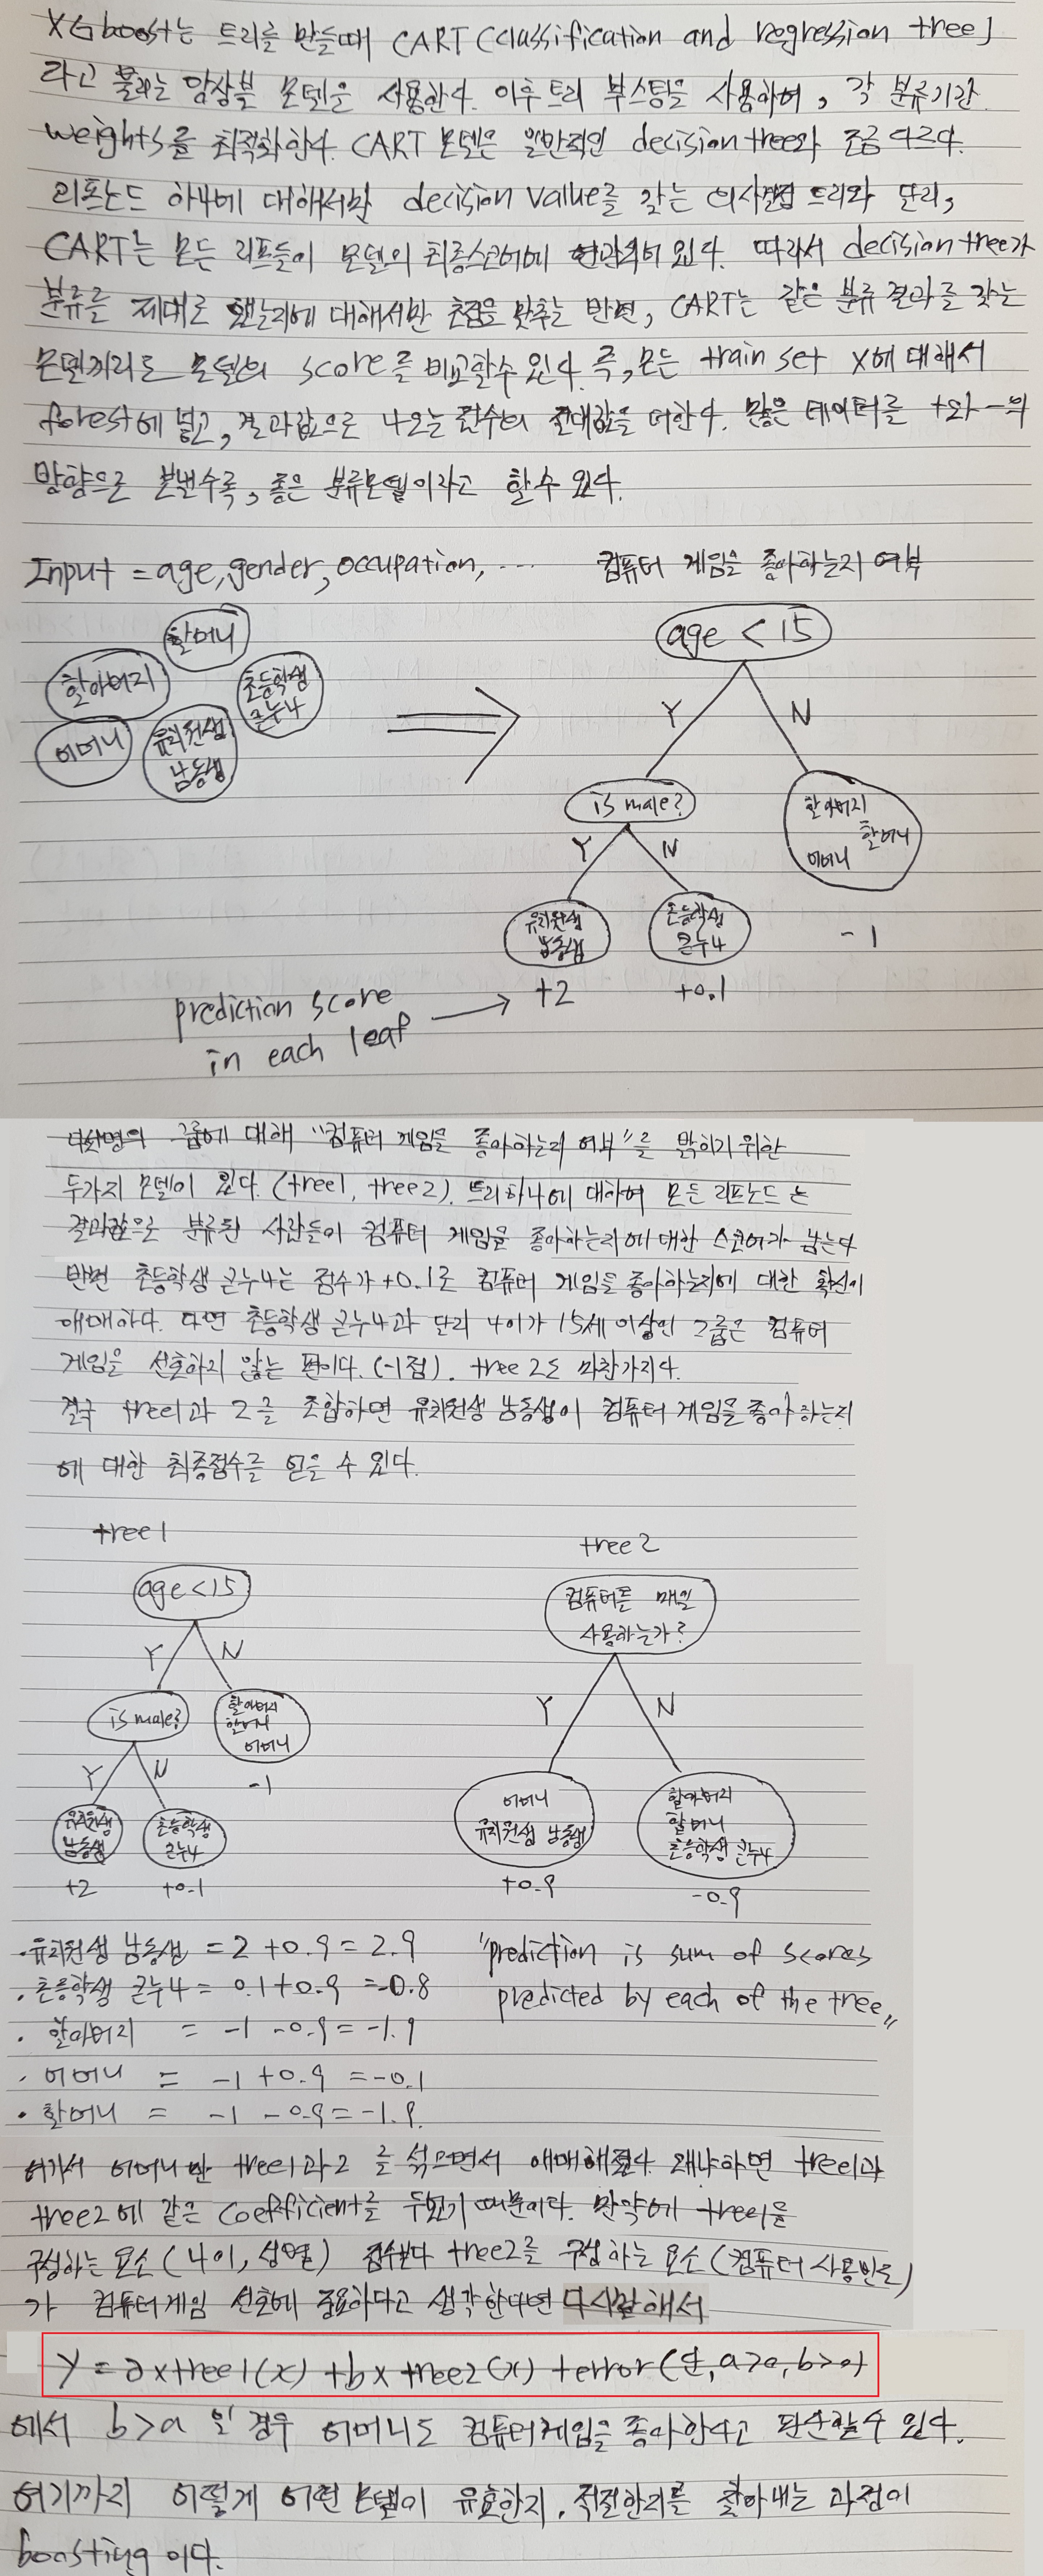 XGboost는 트리를 만들때 CART (Classification and regression tree)
라고 불리는 앙상블 모델을 사용한다. 이후 트리 부스팅을 사용하여, 각 분류기간
weights를 최적화한다. CART 모델은 일반적인 decision tree와 조금 다르다.
리프노드 하나에 대해서만 decision value를 갖는 의사결정 트리와 달리,
CART는 모든 리프들이 모델의 최종스코어에 연관되어 있다. 따라서 decision tree가
분류를 제대로 했는지에 대해서만 초점을 맞추는 반면, CART는 같은 분류 결과를 갖는
모델끼리도 모델의 score를 비교할수 있다. 즉, 모든 train set x에 대해서
forest에 넣고, 결과값으로 나오는 점수의 절대값을 더한다. 많은 데이터를 +와 -의
방향으로 보낼수록, 좋은 분류모델이라고 할수 있다.
Input = age, gender, occupation, ... 컴퓨터 게임을 좋아하는지 여부
할머니
할아버지
초등학생
큰누나
어머니
유치원생
남동생
age < 15
Y N
is male?
할아버지
할머니
어머니
Y N
유치원생
남동생
초등학생
큰누나
-1
+2 +0.1
prediction score
in each leaf
다섯명의 그룹에 대해 "컴퓨터 게임을 좋아하는지 여부"를 밝히기 위한
두가지 모델이 있다. (tree1, tree2). 트리하나에 대하여 모든 리프노드는
결과값으로 분류된 사람들이 컴퓨터 게임을 좋아하는지에 대한 스코어가 남는다
반면 초등학생 큰누나는 점수가 +0.1로 컴퓨터 게임을 좋아하는지에 대한 확신이
애매하다. 다면 초등학생 큰누나과 달리 나이가 15세 이상인 그룹은 컴퓨터
게임을 선호하지 않는 편이다. (-1점). tree 2도 마찬가지다.
결국 tree1과 2를 조합하면 유치원생 남동생이 컴퓨터 게임을 좋아하는지
에 대한 최종점수를 얻을 수 있다.
tree1 tree2
age < 15
컴퓨터를 매일
사용하는가?
Y N
Y N
is male?
할아버지
할머니
어머니
-1
Y N
유치원생
남동생
초등학생
큰누나
+2 +0.1
어머니
유치원생 남동생
+0.9
할아버지
할머니
초등학생 큰누나
-0.9
· 유치원생 남동생 = 2 + 0.9 = 2.9
· 초등학생 큰누나 = 0.1 + 0.9 = -0.8
· 할아버지 = -1 -0.9 = -1.9
· 어머니 = -1 + 0.9 = -0.1
· 할머니 = -1 - 0.9 = -1.9.
"prediction is sum of scores
predicted by each of the tree"
여기서 어머니만 tree1과 2를 섞으면서 애매해졌다. 왜냐하면 tree1과
tree2에 같은 coefficient를 두었기 때문이다. 만약에 tree1을
구성하는 요소 (나이, 성별) 점수보다 tree2를 구성하는 요소 (컴퓨터 사용빈도)
가 컴퓨터게임 선호에 중요하다고 생각한다면 다시말해서
y = a x tree1(x) + b x tree2(x) + error (단, a>0, b>0)
에서 b>a 일 경우 어머니도 컴퓨터게임을 좋아한다고 판단할수 있다.
여기까지 어떻게 어떤 모델이 유효한지, 적절한지를 찾아내는 과정이
boosting 이다.